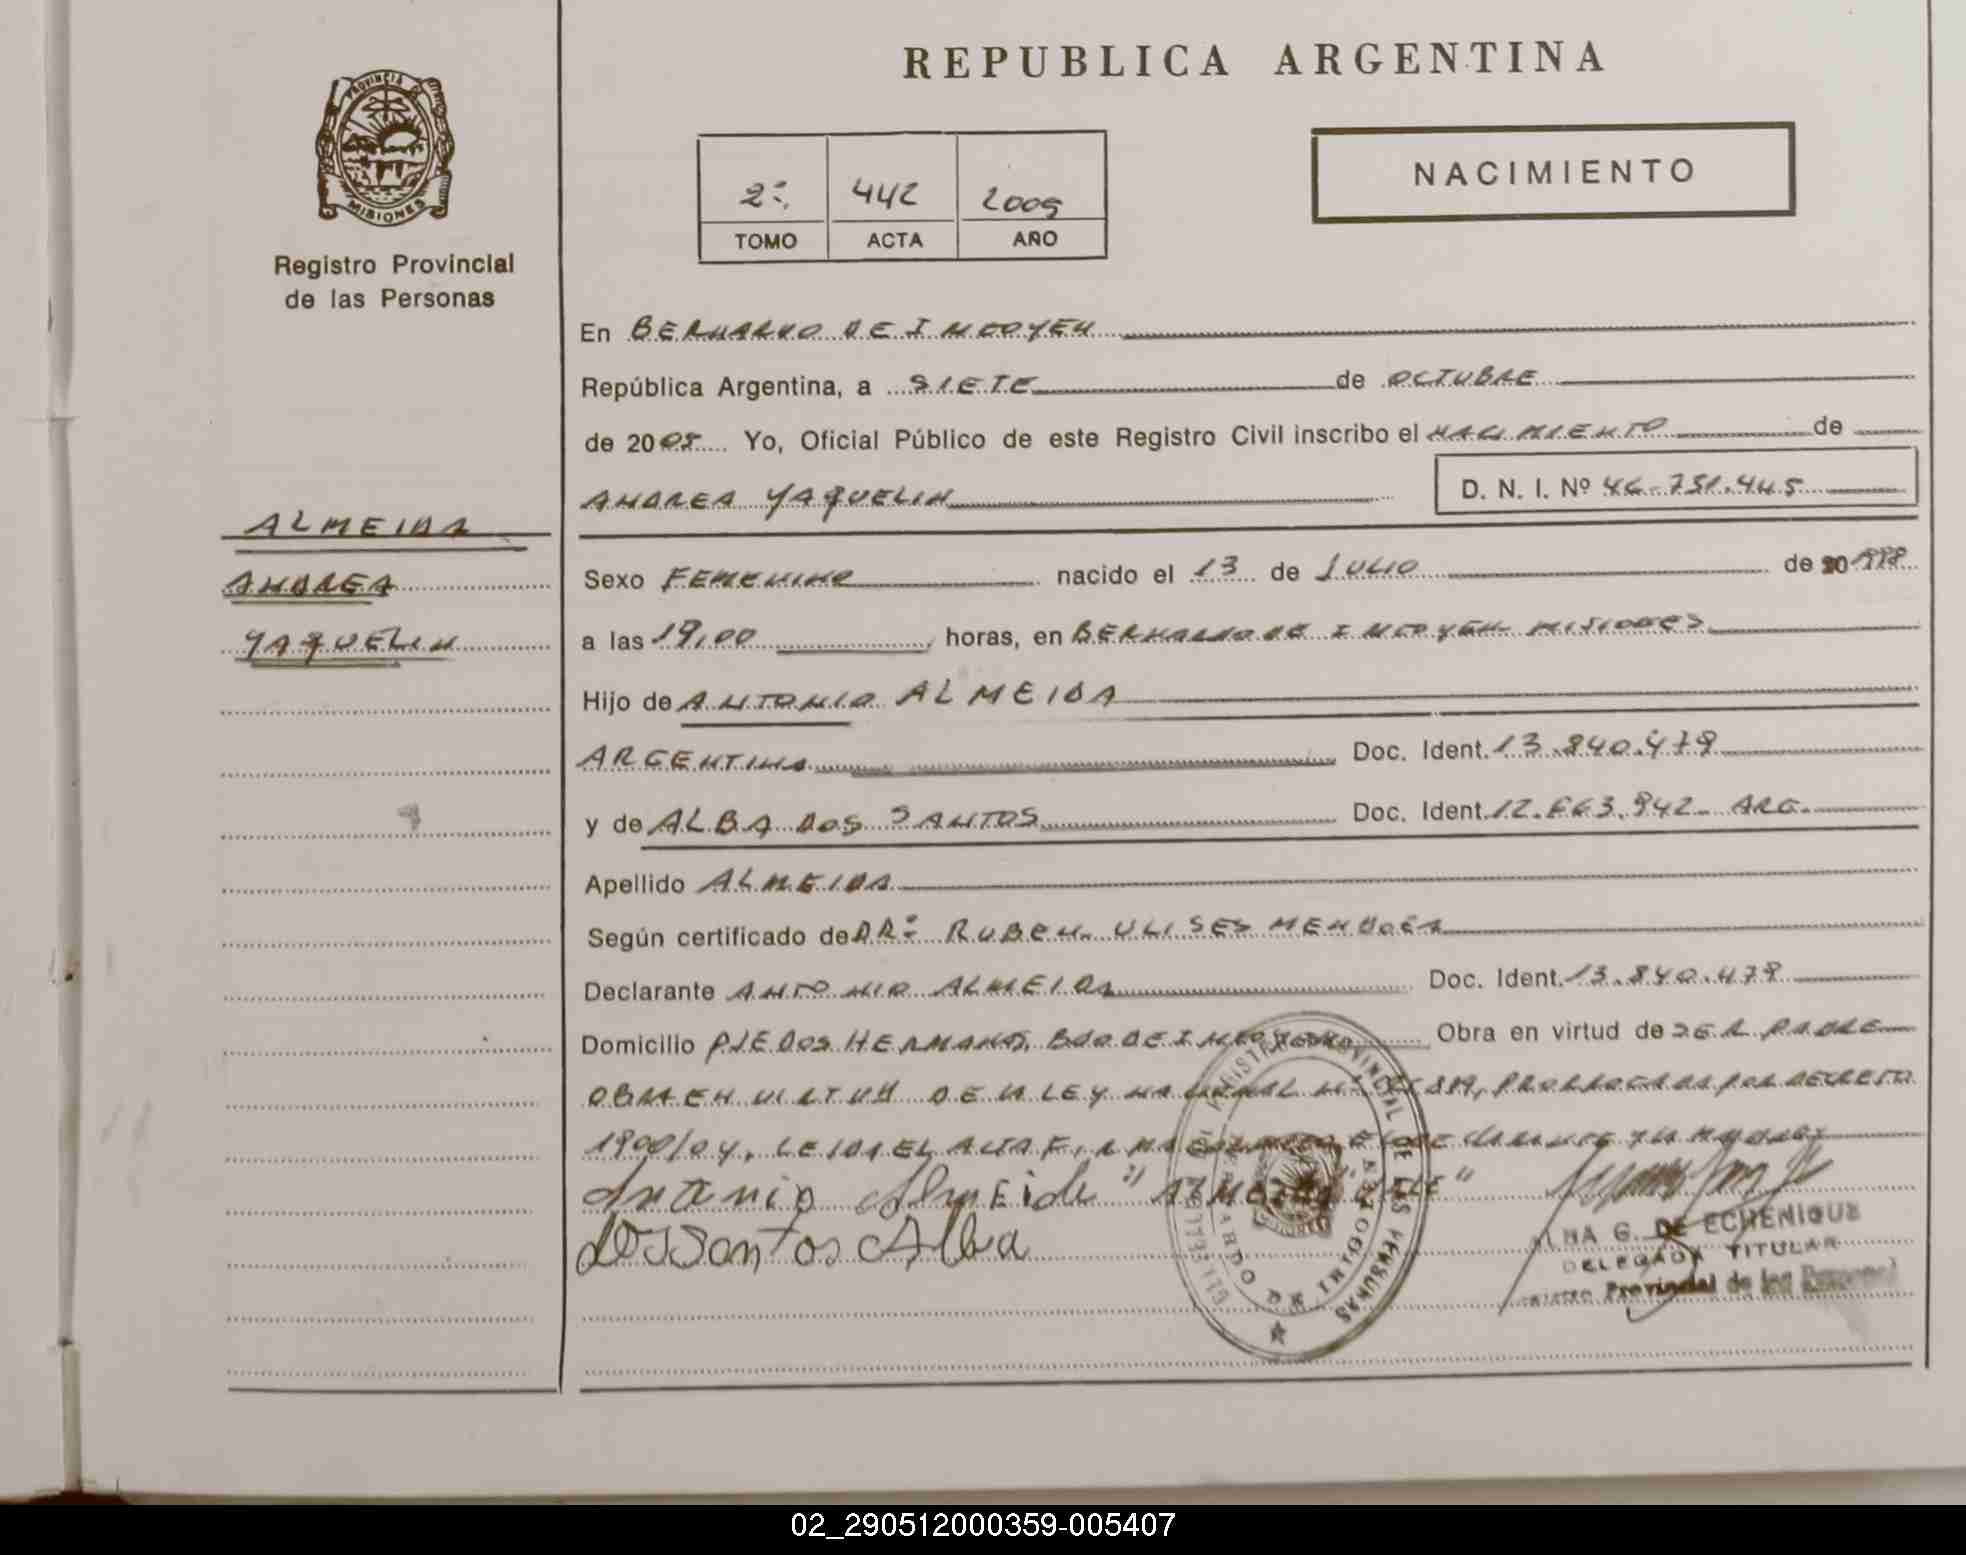 REPUBLICA ARGENTINA
PROVINCIA DE MISIONES
Registro Provincial
de las Personas
2º 442 2005
TOMO ACTA AÑO
NACIMIENTO
En BERNARDO DE IRIGOYEN
República Argentina, a SIETE de OCTUBRE
de 2005 Yo, Oficial Público de este Registro Civil inscribo el NACIMIENTO de
ANDREA YAQUELIN D. N. I. Nº 46.751.445
ALMEIDA
ANDREA
YAQUELIN
Sexo FEMENINO nacido el 13 de JULIO de 1998
a las 19,00 horas, en BERNARDO DE IRIGOYEN MISIONES
Hijo de ANTONIO ALMEIDA
ARGENTINA Doc. Ident. 13.840.479
y de ALBA DOS SANTOS Doc. Ident. 12.663.942 - ARG.
Apellido ALMEIDA
Según certificado de DR: RUBEN ULISES MENDOZA
Declarante ANTONIO ALMEIDA Doc. Ident. 13.840.479
Domicilio PJE DOS HERMANAS, BDO DE IRIGOYEN Obra en virtud de SER PADRE
OBRA EN VIRTUD DE LA LEY NACIONAL Nº 25.819, PRORROGADA POR DECRETO
1900/04. LEIDA EL ACTA FIRMA EL DECLARANTE Y LA MADRE
Antonio Almeida "ALMEIDA VALE"
Dos Santos Alba
REGISTRO PROVINCIAL DE LAS PERSONAS
BERNARDO DE IRIGOYEN
G. DE ECHENIQUE
DELEGADA TITULAR
Provincial de las Personas
02_290512000359-005407